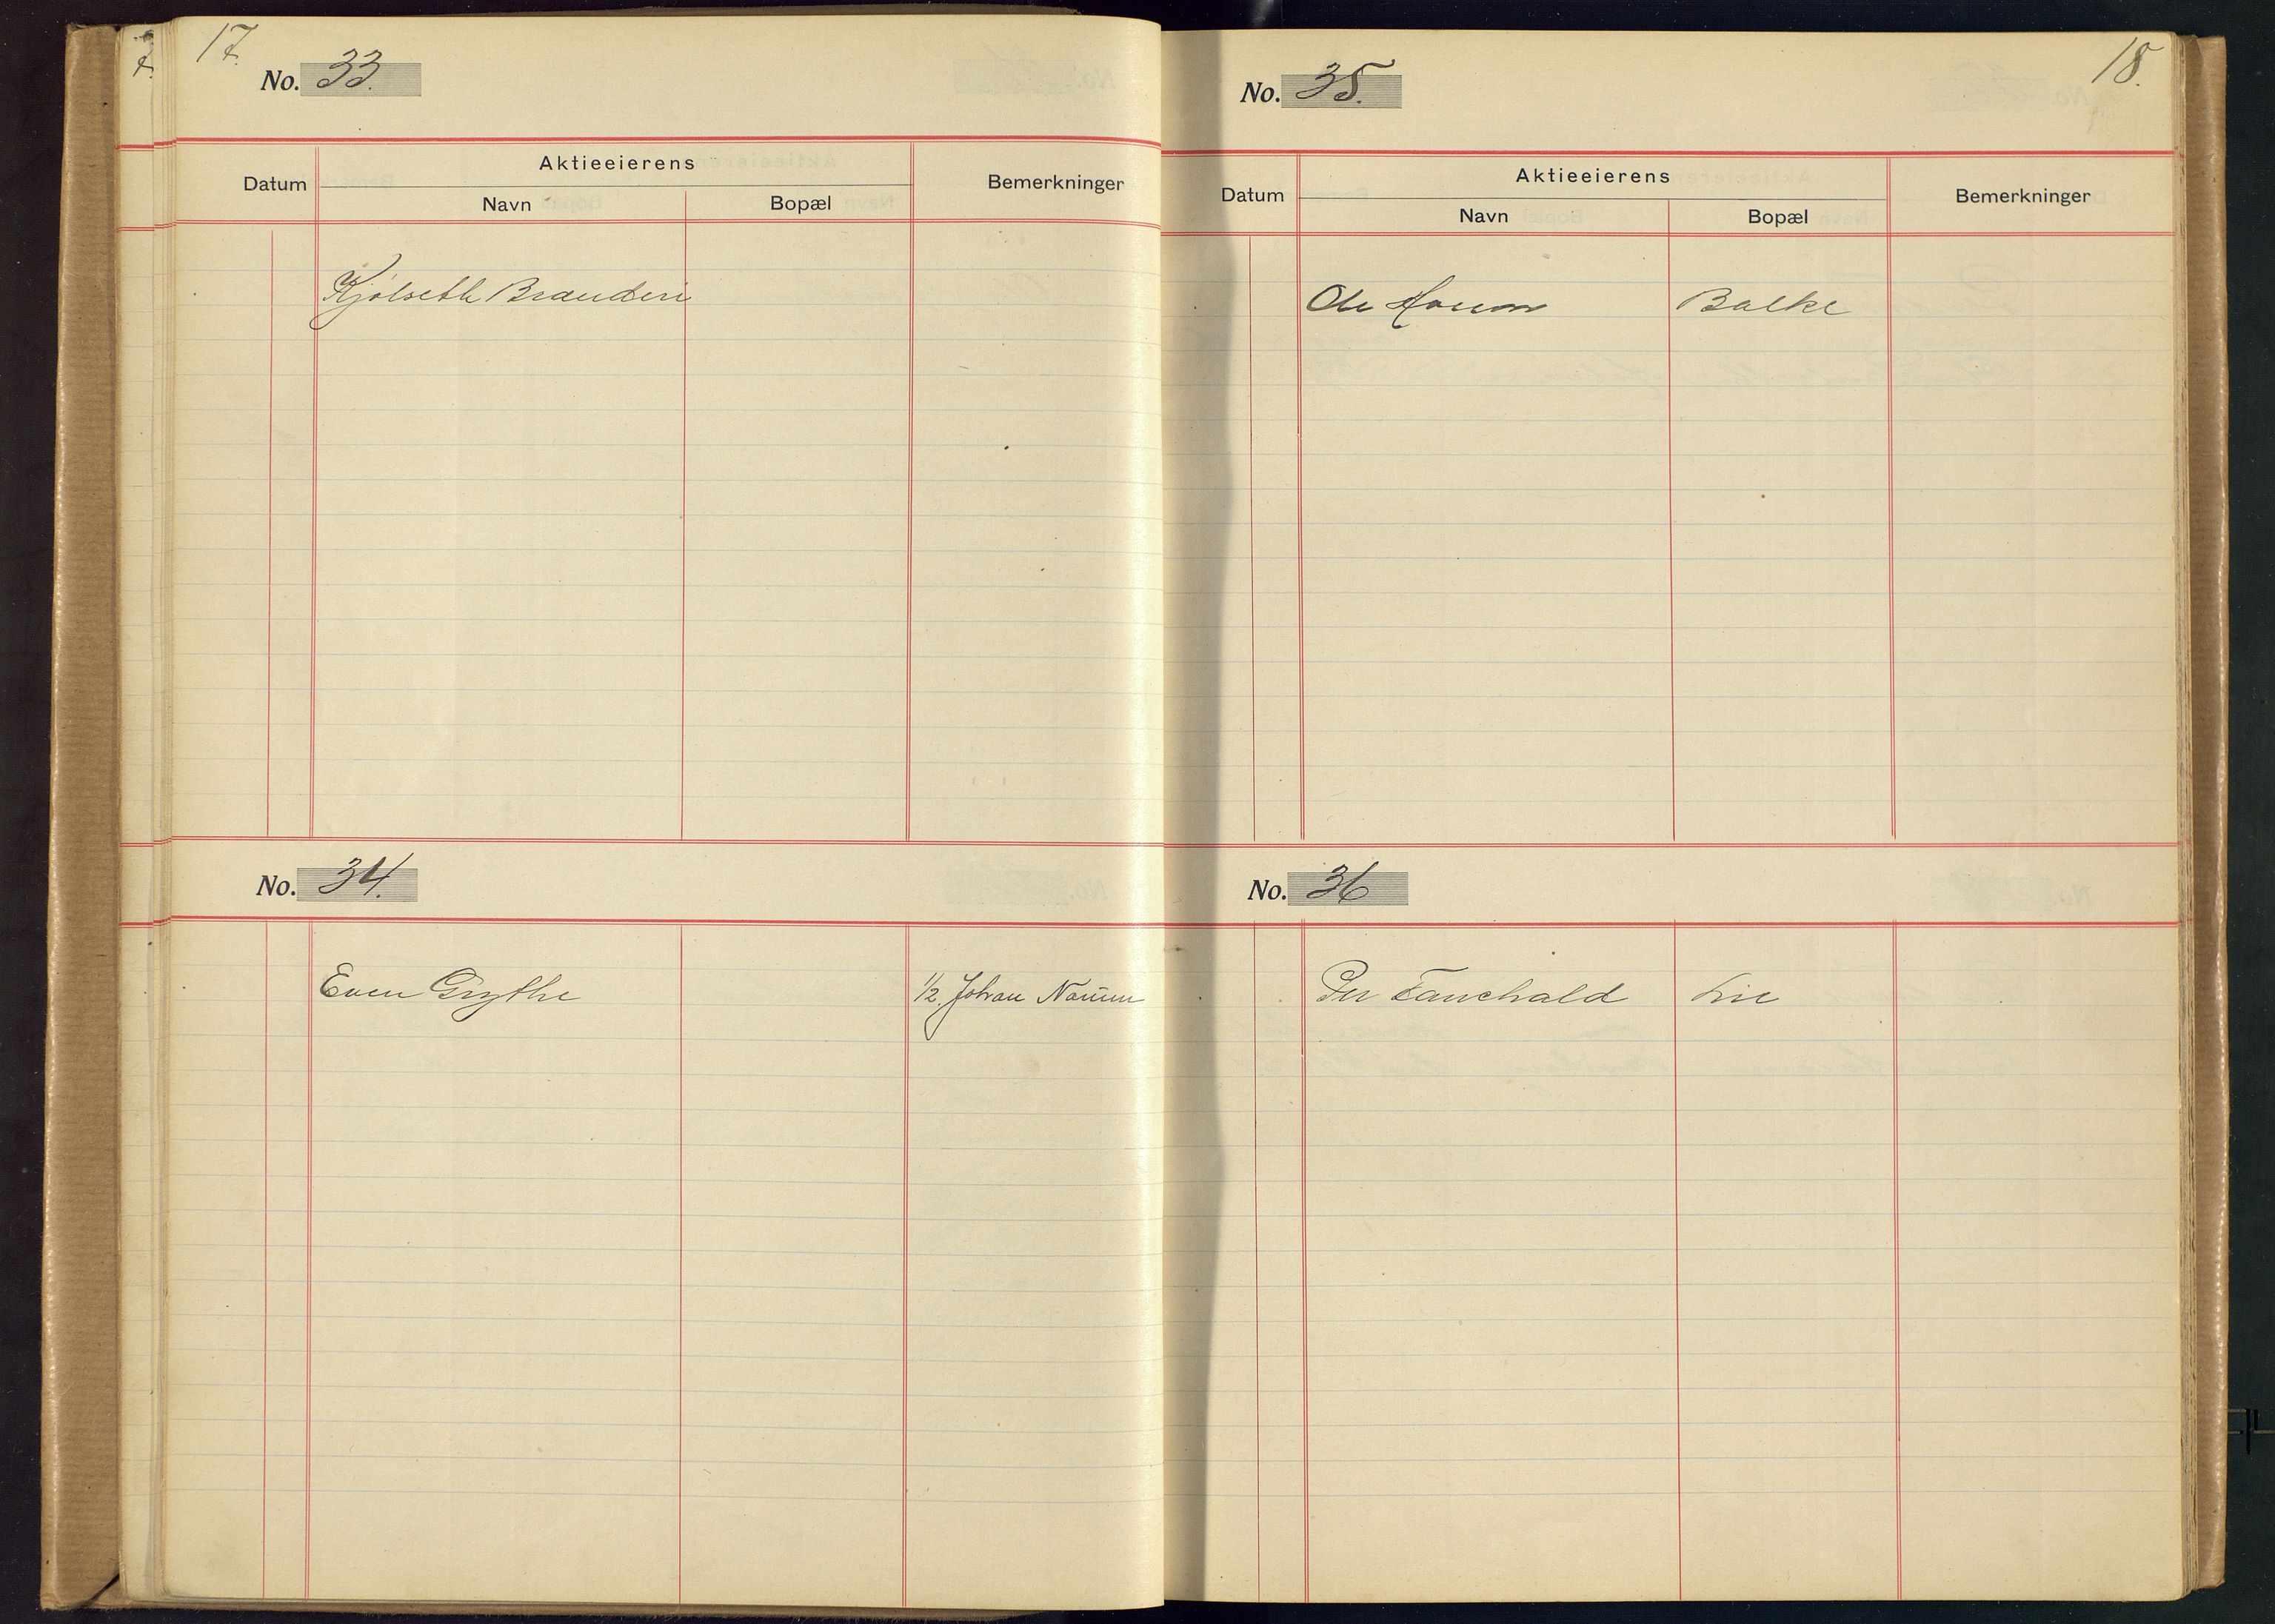 17.
No. 33.
Aktieeierens
Datum Navn Bopæl Bemerkninger
Kjølseth Brænderi
No. 34.
Even Grythe 1/2. Johan Narum
18.
No. 35.
Aktieeierens
Datum Navn Bopæl Bemerkninger
Ole Balke
No. 36
Per Fauchald Lie